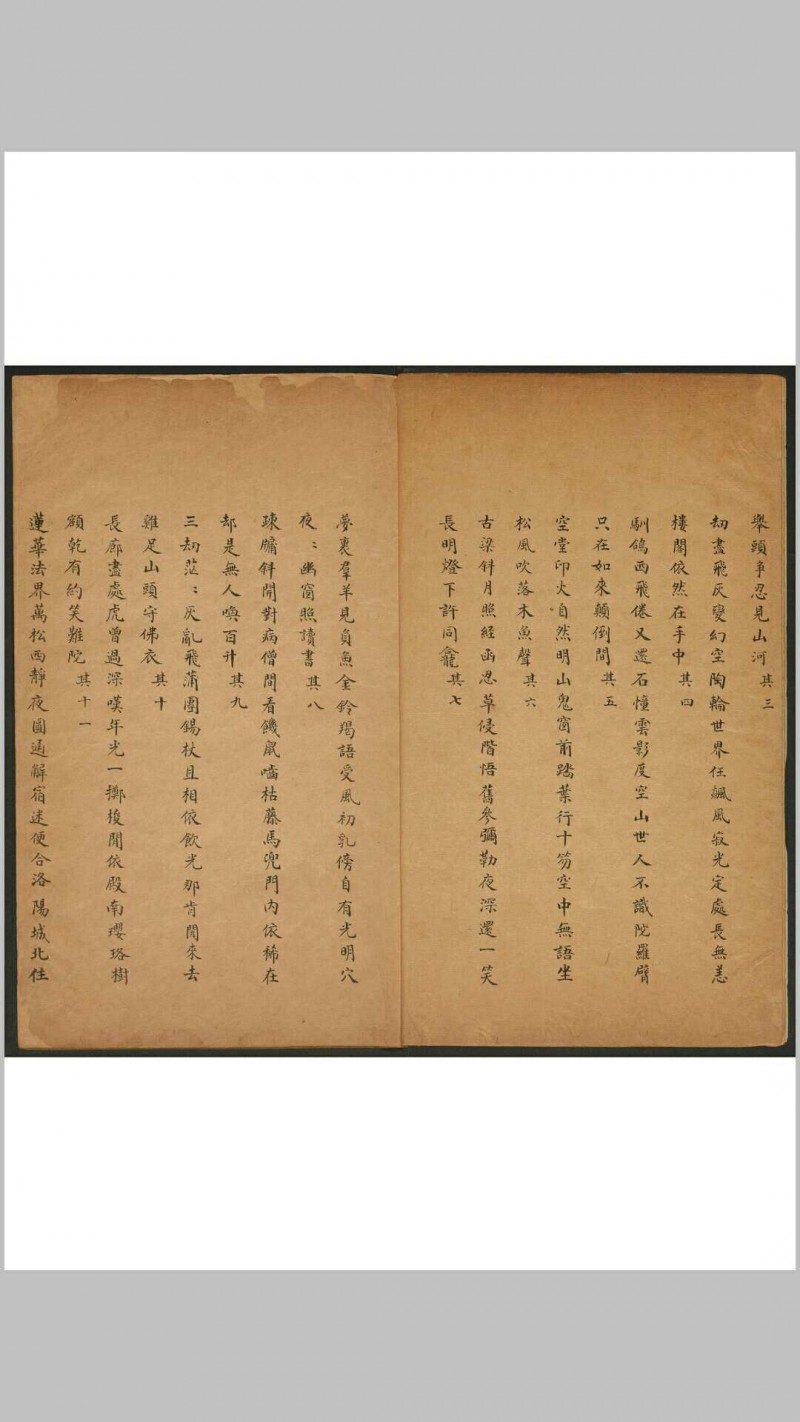 舉頭爭忍見山河其三
劫盡飛灰變幻空陶輪世界任飄風寂光定處長無恙
樓閣依然在手中其四
馴鴿西飛倦又還石幢雲影度空山世人不識陀羅臂
只在如來顛倒間其五
空堂印火自然明山鬼窗前踏葉行十笏空中無語坐
松風吹落木魚聲其六
古梁斜月照經函忍草侵階悟舊參彌勒夜深還一笑
長明燈下許同龕其七
夢裏羣羊見負魚金鈴羯語受風初乳傍自有光明穴
夜：幽窗照讀書其八
疎牖斜開對病僧閒看饑鼠嚙枯藤馬兜門內依稀在
却是無人喚百升其九
三劫茫：灰亂飛蒲團錫杖且相依飲光那肯閒來去
雞足山頭守佛衣其十
長廊盡處虎曾過深嘆年光一擲梭閒依殿南瓔珞樹
額乾有約笑難陀其十一
蓮華法界萬松西靜夜圓通解宿迷便合洛陽城北住